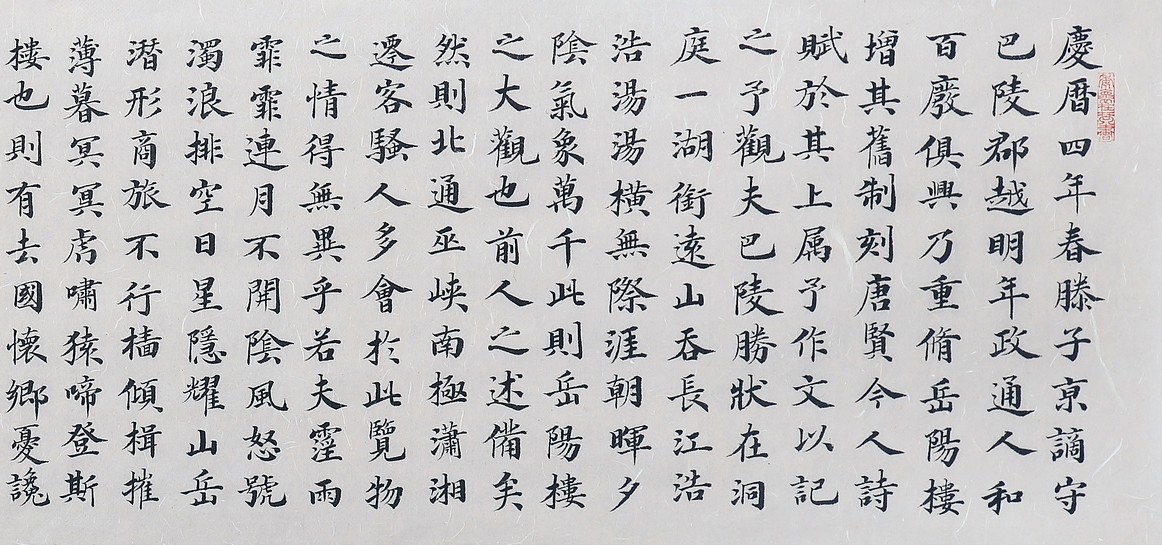 慶曆四年春滕子京謫守
巴陵郡越明年政通人和
百廢俱興乃重脩岳陽樓
增其舊制刻唐賢今人詩
賦於其上属予作文以記
之予觀夫巴陵勝狀在洞
庭一湖銜遠山吞長江浩
浩湯湯橫無際涯朝暉夕
陰氣象萬千此則岳陽樓
之大觀也前人之述備矣
然則北通巫峽南極瀟湘
遷客騷人多會於此覽物
之情得無異乎若夫霪雨
霏霏連月不開陰風怒號
濁浪排空日星隱耀山岳
潛形商旅不行檣傾楫摧
薄暮冥冥虎嘯猿啼登斯
樓也則有去國懷鄉憂讒